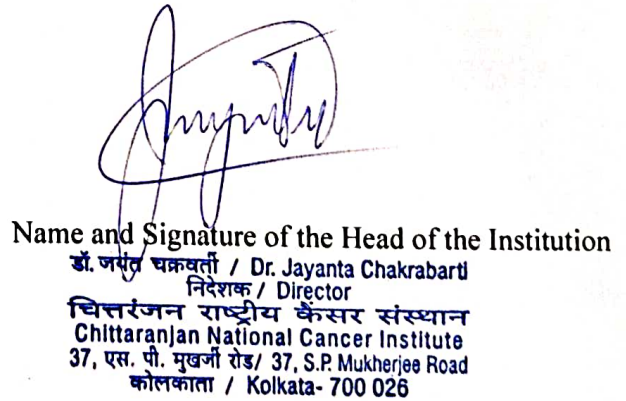 Name and Signature of the Head of the Institution
डॉ. जयंत चक्रवर्ती / Dr. Jayanta Chakrabarti
निदेशक / Director
चित्तरंजन राष्ट्रीय कैंसर संस्थान
Chittaranjan National Cancer Institute
37, एस. पी. मुखर्जी रोड/ 37, S.P. Mukherjee Road
कोलकाता / Kolkata- 700 026